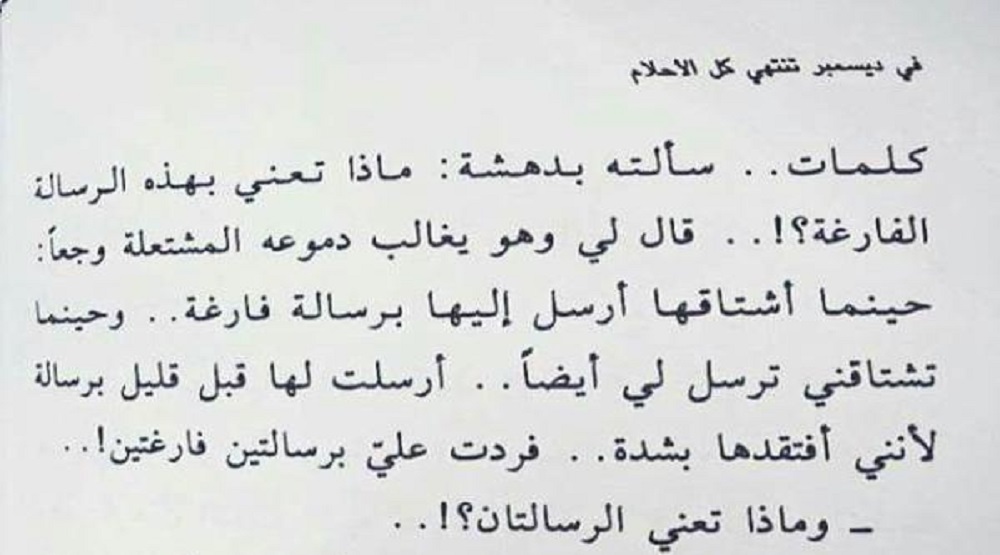 في ديسمبر تنتهي كل الأحلام
كلمات.. سألته بدهشة: ماذا تعني بهذه الرسالة
الفارغة؟!.. قال لي وهو يغالب دموعه المشتعلة وجعاً:
حينما أشتاقها أرسل إليها برسالة فارغة.. وحينما
تشتاقني ترسل لي أيضاً.. أرسلت لها قبل قليل برسالة
لأنني أفتقدها بشدة.. فردت عليّ برسالتين فارغتين!..
ــ وماذا تعني الرسالتان؟!..